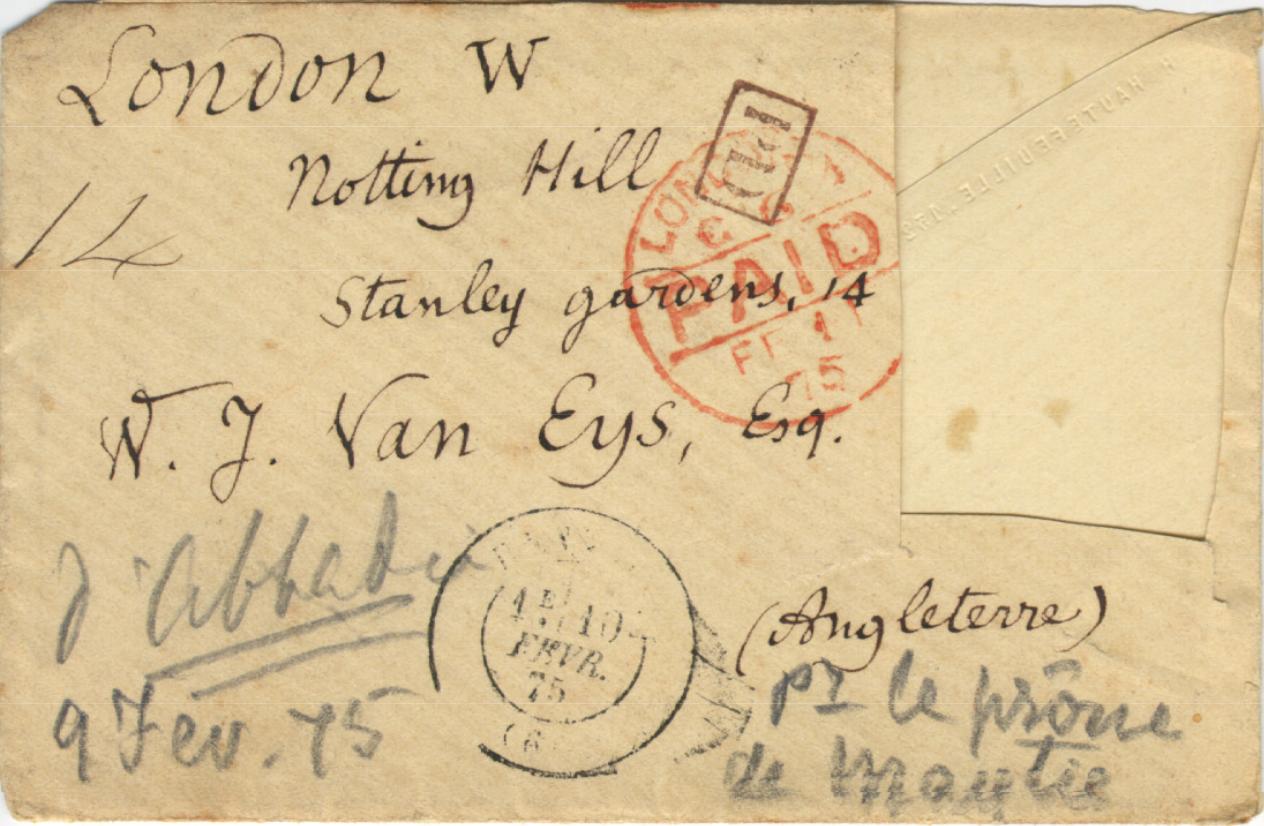 London W
Notting Hill
14
Stanley gardens, 14
W. J. Van Eys, Esq.
PD
LONDON
PAID
75
d'Abbadie
9 Fév. 75
10
FEVR.
75
(Angleterre)
pr le prône
de Maytie
HAUTEFEUILLE